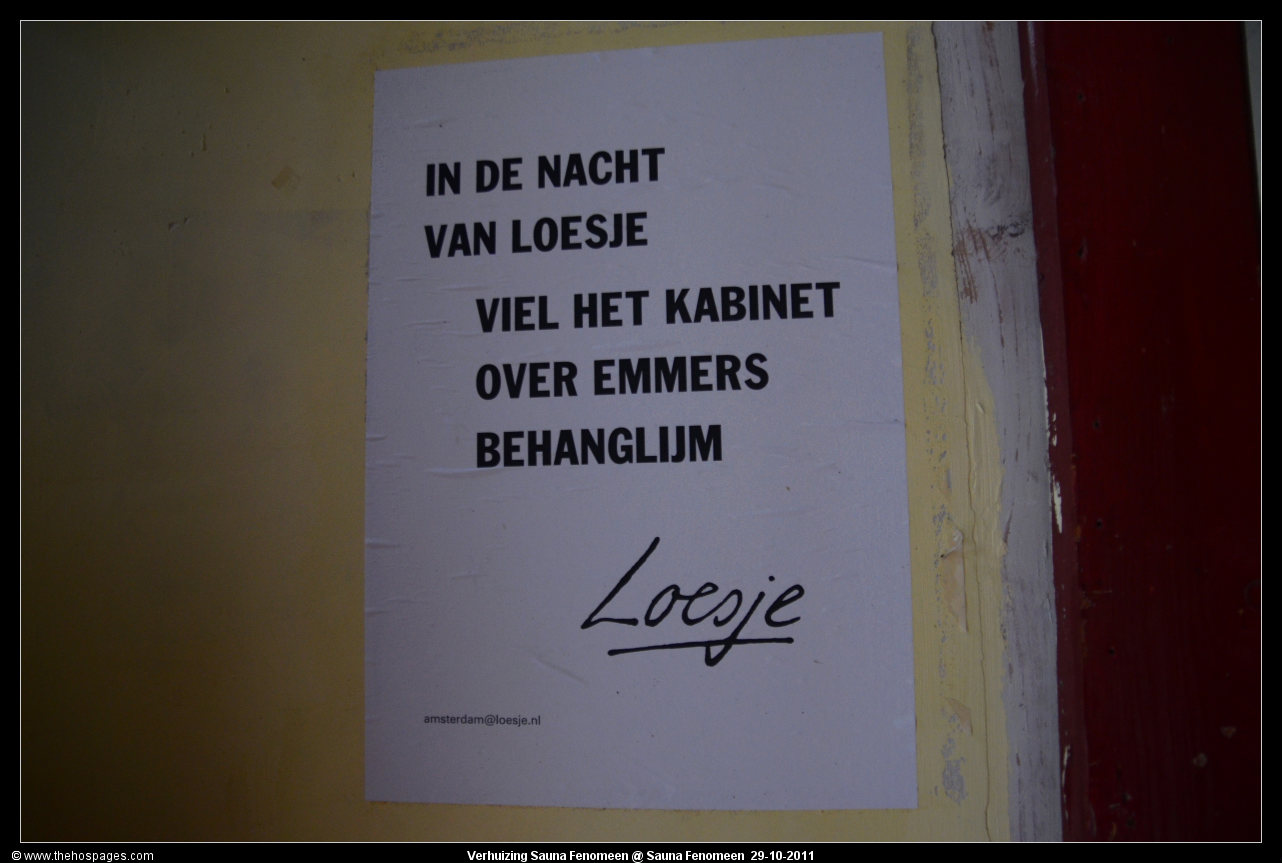 IN DE NACHT
VAN LOESJE
VIEL HET KABINET
OVER EMMERS
BEHANGLIJM
Loesje
amsterdam@loesje.nl
© www.thehospages.com
Verhuizing Sauna Fenomeen @ Sauna Fenomeen 29-10-2011